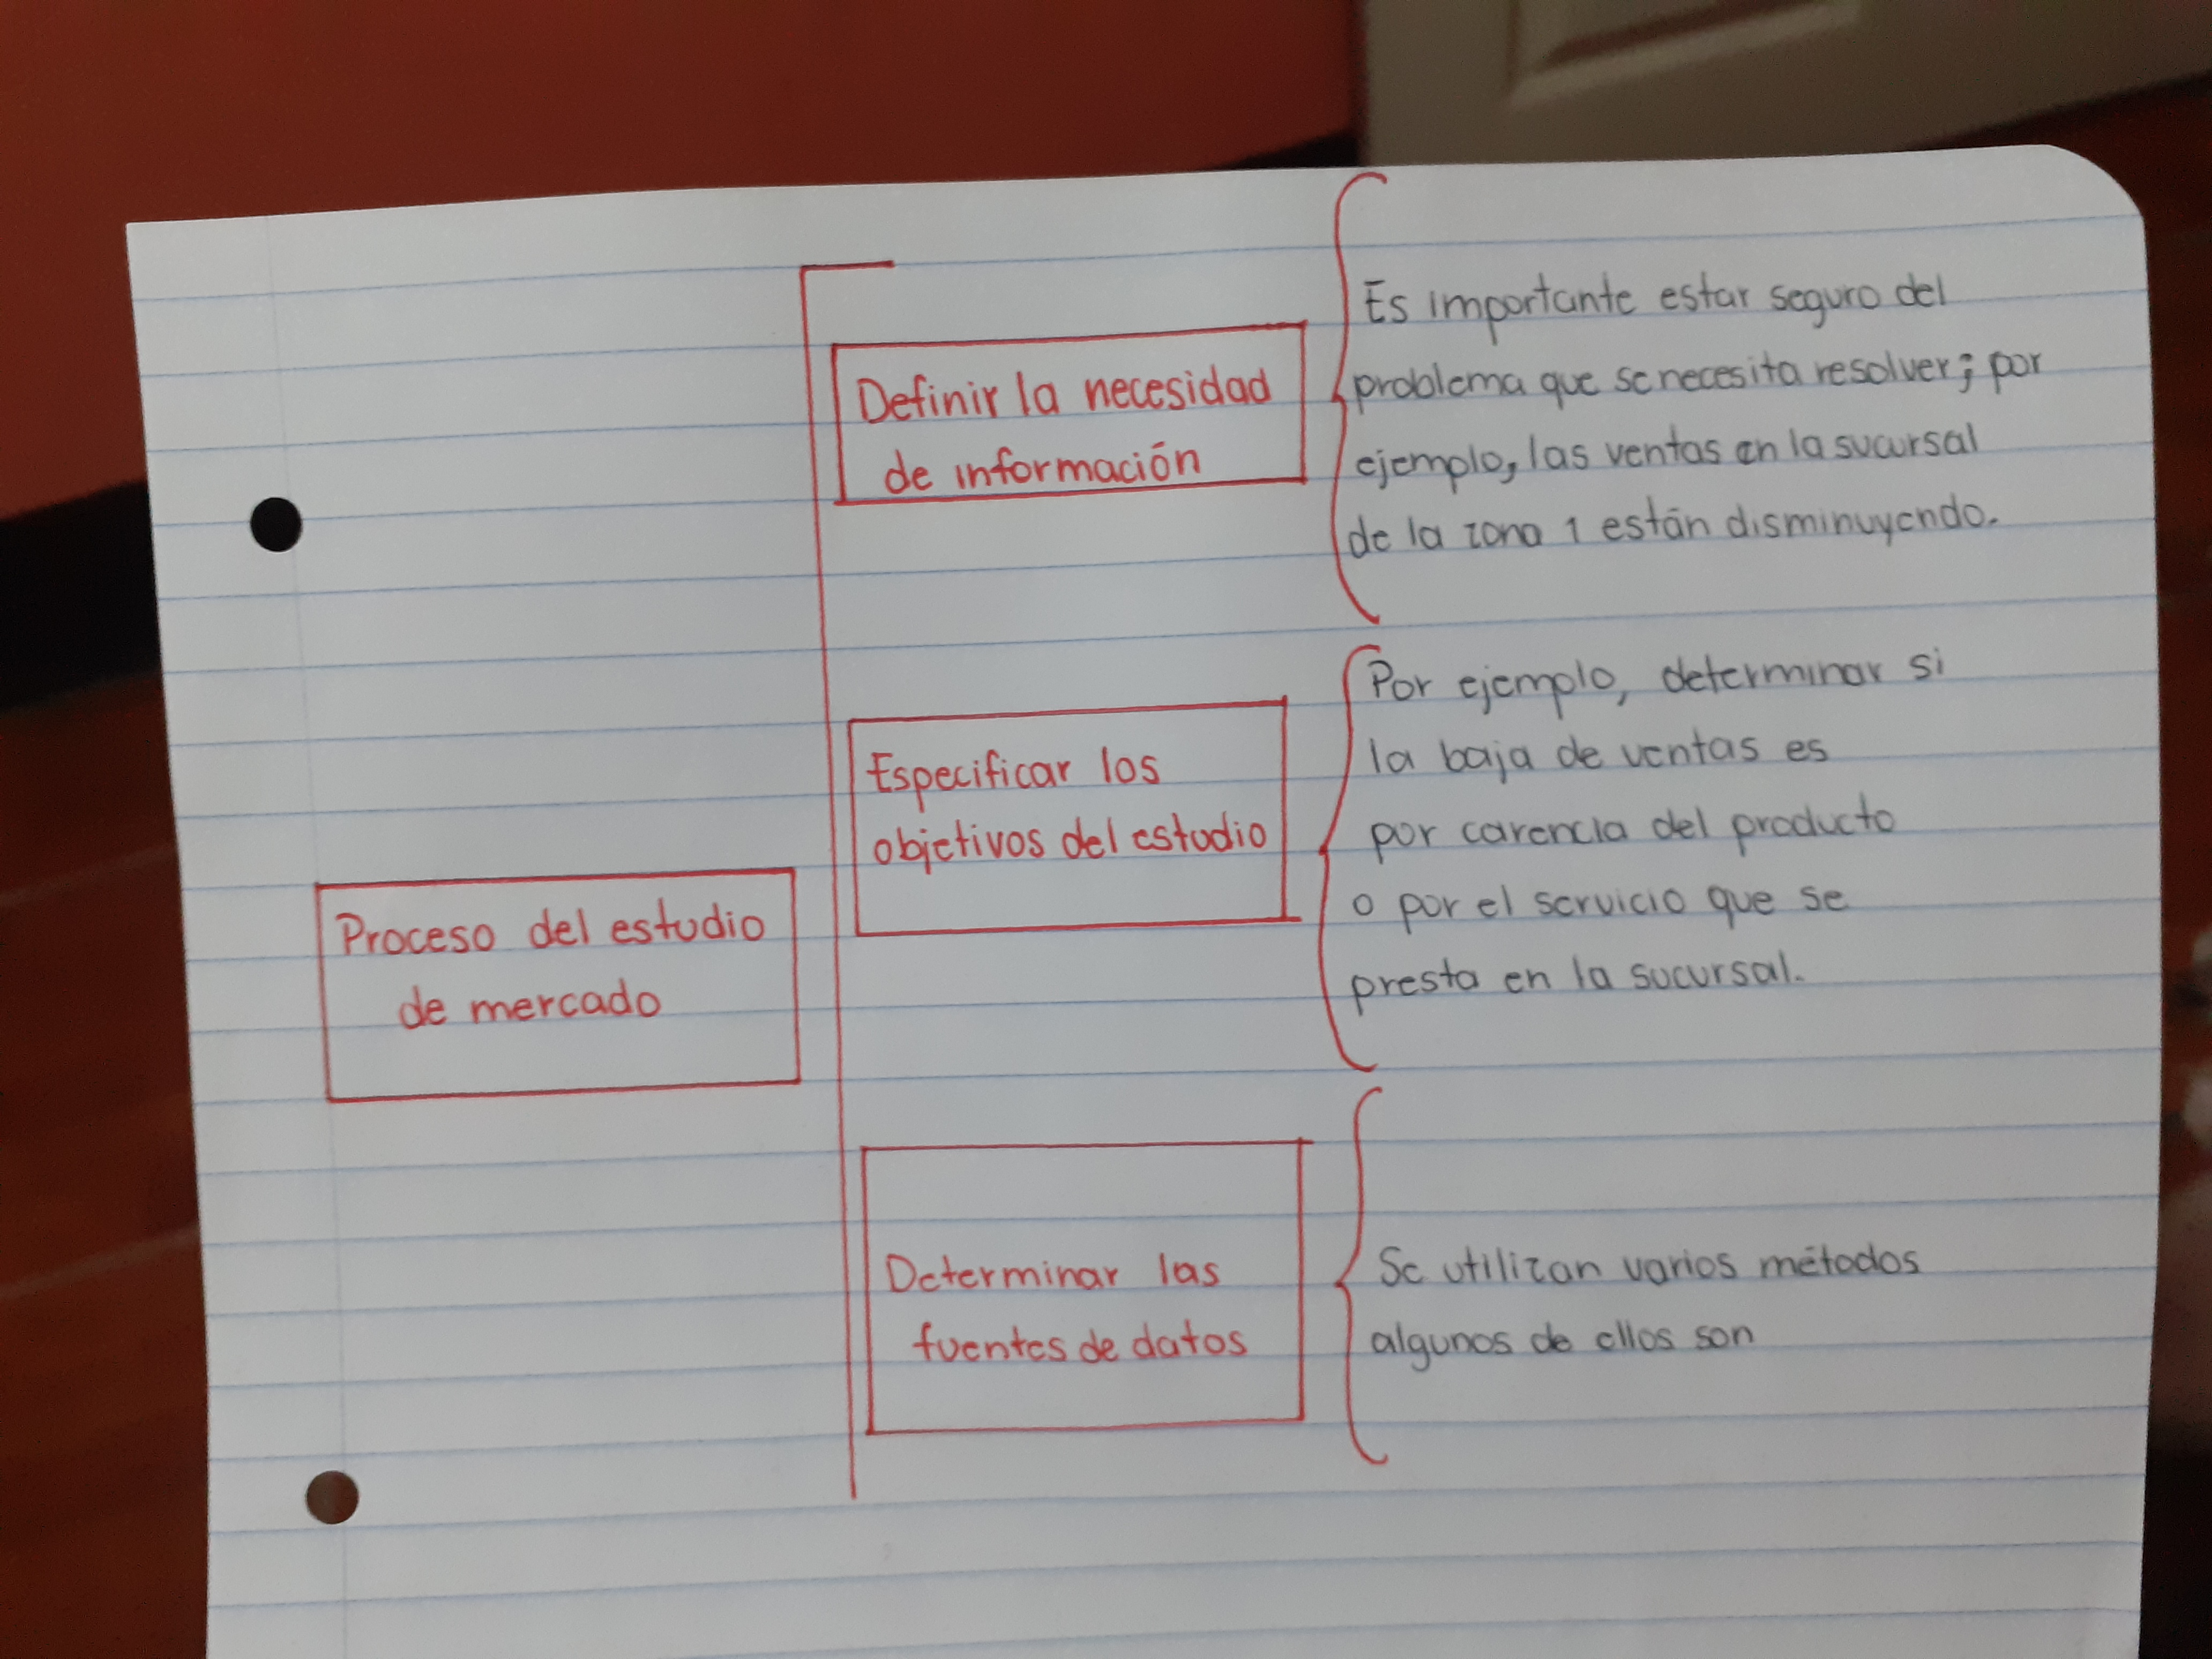 Proceso del estudio
de mercado
Definir la necesidad
de información
Es importante estar seguro del
problema que se necesita resolver; por
ejemplo, las ventas en la sucursal
de la zona 1 están disminuyendo.
Especificar los
objetivos del estudio
Por ejemplo, determinar si
la baja de ventas es
por carencia del producto
o por el servicio que se
presta en la sucursal.
Determinar las
fuentes de datos
Se utilizan varios métodos
algunos de ellos son